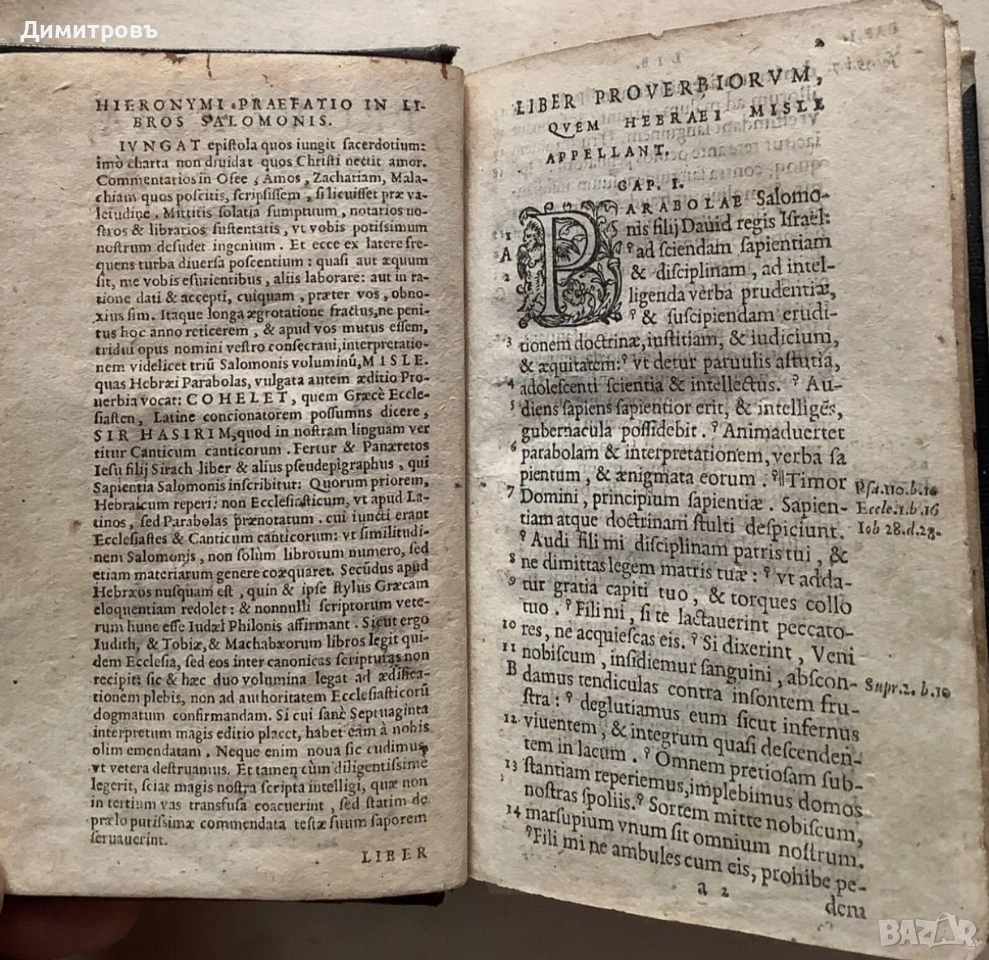 Димитровъ
HIERONYMI PRAEFATIO IN LI-
BROS SALOMONIS.
IVNGAT epistola quos iungit sacerdotium:
imò charta non diuidat quos Christi nectit amor.
Commentarios in Osee, Amos, Zachariam, Mala-
chiam quos poscitis, scripsissem, si licuisset præ va-
letudine. Mittitis solatia sumptuum, notarios no-
stros & librarios sustentatis, vt vobis potissimum
nostrum desudet ingenium. Et ecce ex latere fre-
quens turba diuersa poscentium: quasi aut æquum
sit, me vobis esurientibus, aliis laborare: aut in ra-
tione dati & accepti, cuiquam, præter vos, obno-
xius sim. Itaque longa ægrotatione fractus, ne peni-
tus hoc anno reticerem, & apud vos mutus essem,
tridui opus nomini vestro consecraui, interpretatio-
nem videlicet triũ Salomonis voluminũ, MISLE
quas Hebræi Parabolas, vulgata autem æditio Pro-
uerbia vocat: COHELET, quem Græcè Eccle-
siasten, Latine concionatorem possumus dicere,
SIR HASIRIM, quod in nostram linguam ver
titur Canticum canticorum. Fertur & Panaretos
Iesu filij Sirach liber & alius pseudepigraphus, qui
Sapientia Salomonis inscribitur: Quorum priorem,
Hebraicum reperi: non Ecclesiasticum, vt apud La-
tinos, sed Parabolas prænotatum. cui iuncti erant
Ecclesiastes & Canticum canticorum: vt similitudi-
nem Salomonis, non solùm librorum numero, sed
etiam materiarum genere coæquaret. Secũdus apud
Hebræos nusquam est, quin & ipse stylus Græcam
eloquentiam redolet: & nonnulli scriptorum vete-
rum hunc esse Iudæi Philonis affirmant. Sicut ergo
Iudith, & Tobiæ, & Machabæorum libros legit qui-
dem Ecclesia, sed eos inter canonicas scripturas non
recipit: sic & hæc duo volumina legat ad ædifica-
tionem plebis, non ad authoritatem Ecclesiasticorũ
dogmatum confirmandam. Si cui sanè Septuaginta
interpretum magis editio placet, habet eam à nobis
olim emendatam. Neque enim noua sic cudimus,
vt vetera destruamus. Et tamen cùm diligentissime
legerit, sciat magis nostra scripta intelligi, quæ non
in tertium vas transfusa coacuerint, sed statim de
prælo purissimæ commendata testæ suum saporem
seruauerint.
LIBER
2
LIBER PROVERBIORVM,
QVEM HEBRAEI MISLE
APPELLANT.
CAP. I.
PARABOLAE Salomo-
1 nis filij Dauid regis Israel:
A ad sciendam sapientiam
2 & disciplinam, ad intel-
ligenda verba prudentiæ,
& suscipiendam erudi-
3 tionem doctrinæ, iustitiam, & iudicium,
& æquitatem: vt detur paruulis astutia,
4 adolescenti scientia & intellectus. Au-
5 diens sapiens sapientior erit, & intelligẽs,
gubernacula possidebit. Animaduertet
6 parabolam & interpretationem, verba sa
pientum, & ænigmata eorum. Timor Psa.110.b.10
7 Domini, principium sapientiæ. Sapien- Eccle.1.b.16
tiam atque doctrinam stulti despiciunt. Iob 28.d.28.
Audi fili mi disciplinam patris tui, &
8 ne dimittas legem matris tuæ: vt adda-
9 tur gratia capiti tuo, & torques collo
tuo. Fili mi, si te lactauerint peccato-
10 res, ne acquiescas eis. Si dixerint, Veni
11 nobiscum, insidiemur sanguini, abscon-
B damus tendiculas contra insontem fru- Supr.2.b.10
stra: deglutiamus eum sicut infernus
12 viuentem, & integrum quasi descenden-
tem in lacum. Omnem pretiosam sub-
13 stantiam reperiemus, implebimus domos
nostras spoliis. Sortem mitte nobiscum,
14 marsupium vnum sit omnium nostrum.
Fili mi ne ambules cum eis, prohibe pe-
a 2 dem
BAZAR